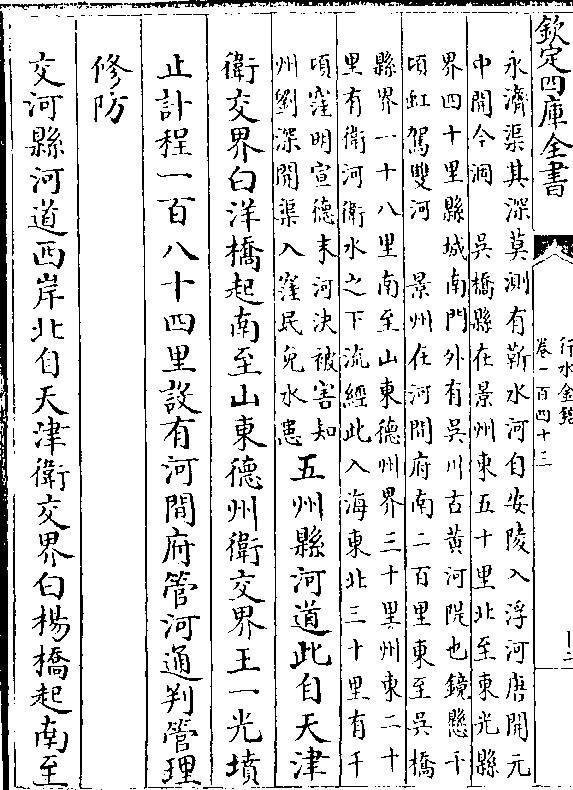 欽定四庫全書
行水金鑑
卷一百四十三
永濟渠其深莫測有靳水河自安陵入浮河唐開元
中開今洞 吳橋縣在景州東五十里北至東光縣
界四十里縣城南門外有吳川古黃河隄也鏡懸千
頃虹駕雙河 景州在河間府南二百里東至吳橋
縣界一十八里南至山東德州界三十里州東二十
里有衛河衛水之下流經此入海東北三十里有千
頃窪明宣德末河決被害知
州劉深開渠入窪民免水患
五州縣河道此自天津
衛交界白洋橋起南至山東德州衛交界王一光墳
止計程一百八十四里設有河間府管河通判管理
修防
交河縣河道西岸北自天津衛交界白楊橋起南至